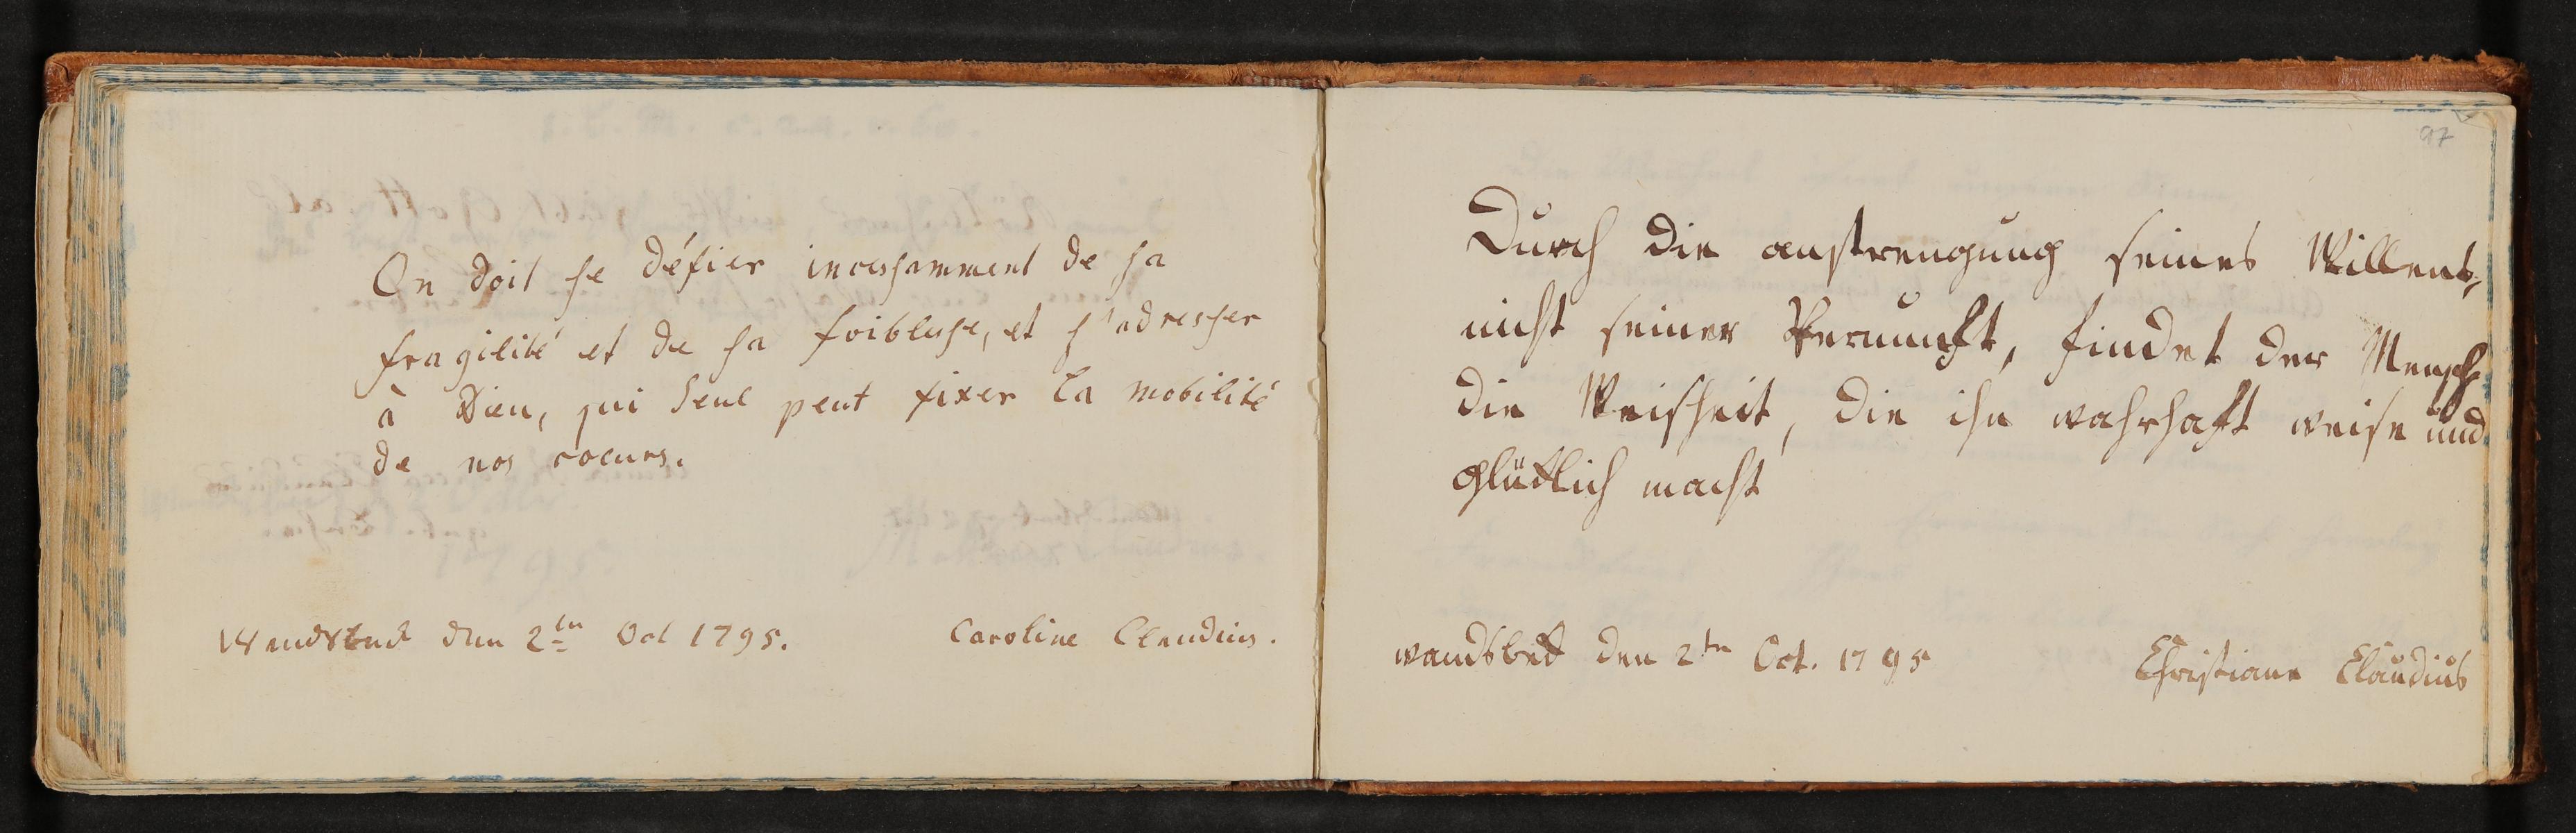 On doit se défier incessamment de sa
fragilité et de sa foiblesse, et s'adresser
à Dieu, qui Seul peut fixer la mobilité
de nos coeurs.
Wandsbeck den 2ten Oct 1795.
Caroline Claudius.
97
Durch die anstrengung seines Willens,
nicht seiner Vernunft, findet der Mensch
die Weisheit, die ihn wahrhaft weise und
glücklich macht
wandsbeck den 2ten Oct. 1795
Christiane Claudius